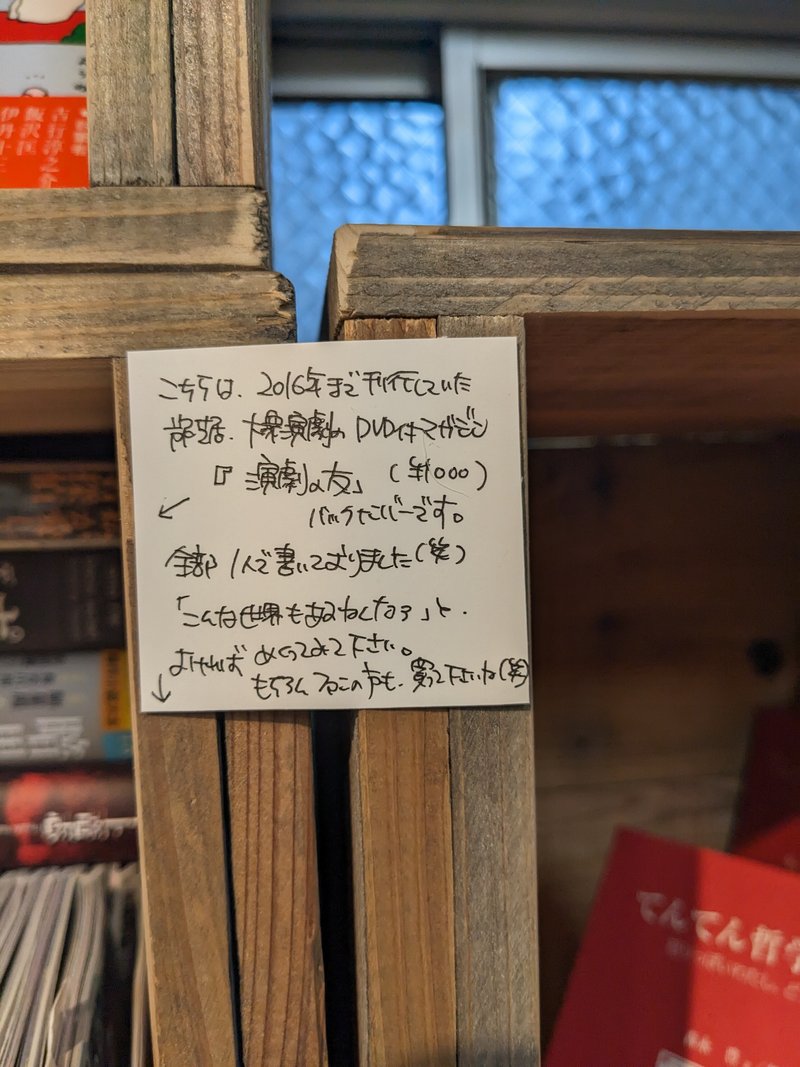 こちらは、2016年まで刊行していた
演劇の DVD付マガジン
『演劇の友』 (¥1000)
バックナンバーです。
全部 1人で書いておりました(笑)
「こんな世界もあるねんなぁ」と、
よければ めくってみて下さい。
もちろん の方も、買って下さいね(笑)
吉行淳之介
飯沢匡
伊丹十三
てんてん哲学